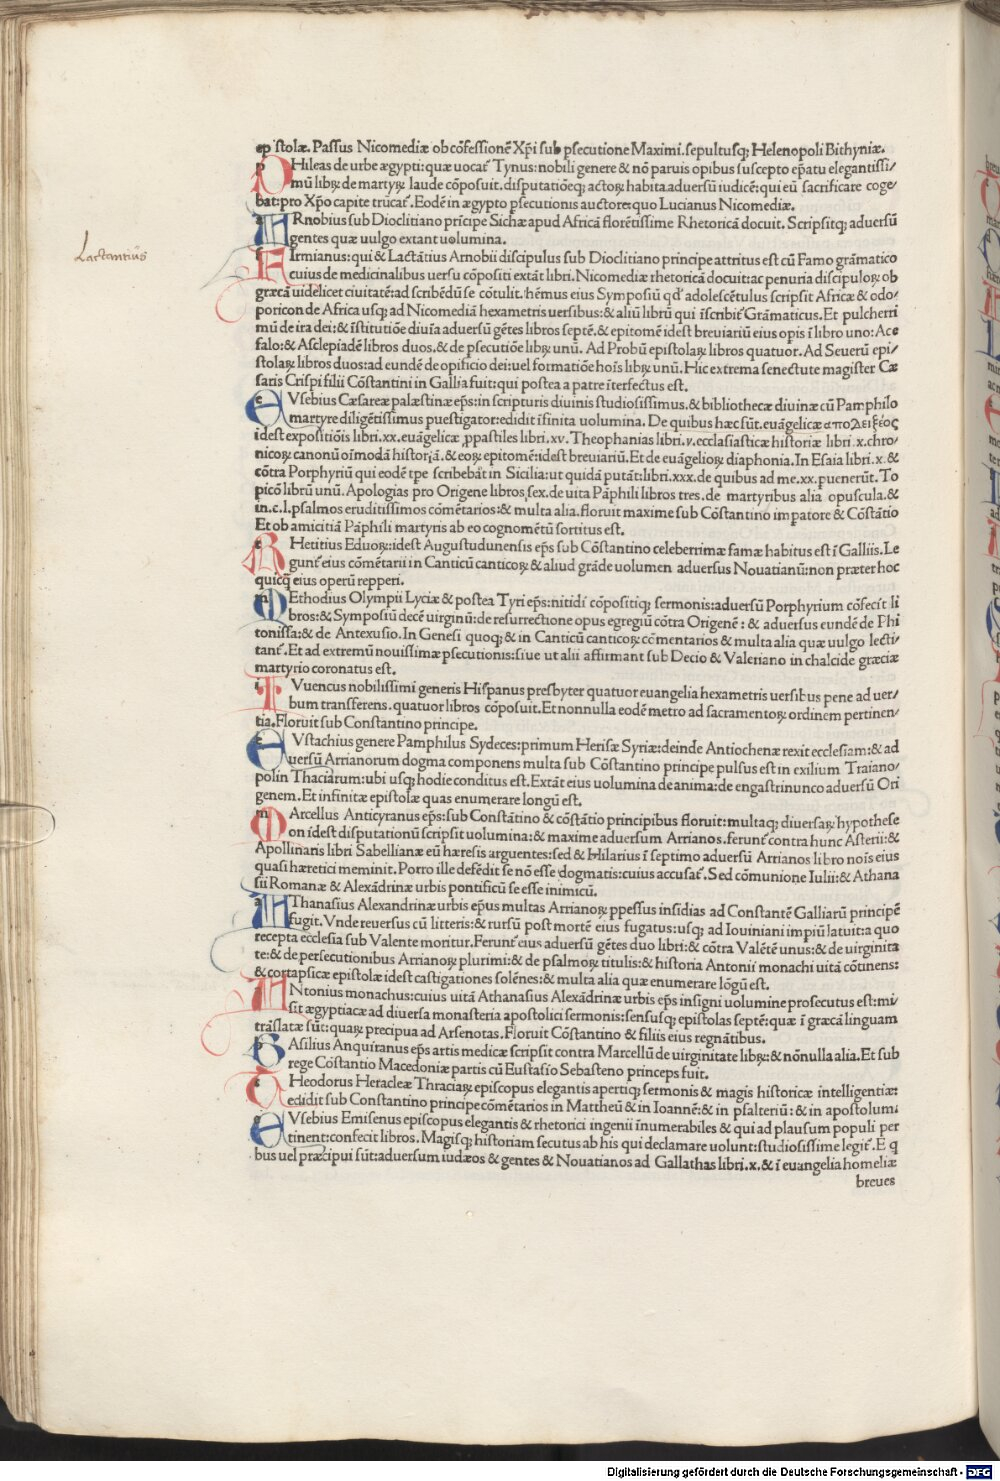 epistolæ. Passus Nicomediæ ob cōfessionē Xp̄i sub p̱secutione Maximi. sepultusq; Helenopoli Bithyniæ.
PHileas de urbe ægypti: quæ uocat᷑ Tynus: nobili genere & nō paruis opibus suscepto ep̄atu elegantissi/
mū libꝝ de martyꝝ laude cōposuit. disputatiōeq; actoꝝ habita aduersū iudicē: qui eū sacrificare coge/
bat: pro Xp̄o capite trūcat᷑. Eodē in ægypto p̱secutionis auctore: quo Lucianus Nicomediæ.
Lactantius
ARnobius sub Dioclitiano prīcipe Sichæ apud Africā florētissime Rhetoricā docuit. Scripsitq; aduersū
gentes quæ uulgo extant uolumina.
FIrmianus: qui & Lactātius Arnobii discipulus sub Dioclitiano principe attritus est cū Famo grāmatico
cuius de medicinalibus uersu cōpositi extāt libri. Nicomediæ rhetoricā docuit: ac penuria discipuloꝝ ob
græcā uidelicet ciuitatē: ad scribēdū se cōtulit. hēmus eius Symposiū qđ adolescētulus scripsit Africæ & odo/
poricon de Africa usq; ad Nicomediā hexametris uersibus: & aliū librū qui īscribit᷑ Grāmaticus. Et pulcherri
mū de ira dei: & īstitutiōe diuīa aduersū gētes libros septē. & epitomē idest breuiariū eius opis ī libro uno: Ace
falo: & Asclepiadē libros duos. & de p̱secutiōe libꝝ unū. Ad Probū epistolaꝝ libros quatuor. Ad Seuerū epi/
stolaꝝ libros duos: ad eundē de opificio dei: uel formatiōe hoīs libꝝ unū. Hic extrema senectute magister Cæ
saris Crispi filii Cōstantini in Gallia fuit: qui postea a patre īterfectus est.
EVsebius Cæsareæ palæstinæ ep̄s: in scripturis diuinis studiosissimus. & bibliothecæ diuinæ cū Pamphilo
martyre diligētissimus puestigator: edidit īfinita uolumina. De quibus hæc sūt. euāgelicæ αποδειξέος
idest expositiōis libri. xx. euāgelicæ p̱pastiles libri. xv. Theophanias libri. v. ecclasiasticæ historiæ libri. x. chro/
nicoꝝ canonū oīmodā historiā. & eoꝝ epitomē: idest breuiariū. Et de euāgelioꝝ diaphonia. In Esaia libri. x. &
cōtra Porphyriū qui eodē tp̄e scribebāt in Sicilia: ut quidā putāt: libri. xxx. de quibus ad me. xx. puenerūt. To
picō librū unū. Apologias pro Origene libros sex. de uita Pāphili libros tres. de martyribus alia opuscula. &
in. c. l. psalmos eruditissimos cōmētarios: & multa alia. floruit maxime sub Cōstantino impatore & Cōstātio
Et ob amicitiā Pāphili martyris ab eo cognomētū sortitus est.
RHetitius Eduoꝝ: idest Augustudunensis ep̄s sub Cōstantino celeberrimæ famæ habitus est ī Galliis. Le
gunt᷑ eius cōmētarii in Canticū canticoꝝ: & aliud grāde uolumen aduersus Nouatianū: non præter hoc
quicq̄ eius operū repperi.
MEthodius Olympii Lyciæ & postea Tyri ep̄s: nitidi cōpositiq; sermonis: aduersū Porphyrium cōfecit li
bros: & Symposiū decē uirginū: de resurrectione opus egregiū cōtra Origenē: & aduersus eundē de Phi
tonissa: & de Antexusio. In Genesi quoq; & in Canticū canticoꝝ cōmentarios & multa alia quæ uulgo lecti/
tant᷑. Et ad extremū nouissimæ p̱secutionis: siue ut alii affirmant sub Decio & Valeriano in chalcide græciæ
martyrio coronatus est.
IVuencus nobilissimi generis Hispanus presbyter quatuor euangelia hexametris uersibus pene ad uer/
bum transferens. quatuor libros cōposuit. Et nonnulla eodē metro ad sacramentoꝝ ordinem pertinen/
tia. Floruit sub Constantino principe.
EVstachius genere Pamphilus Sydeces: primum Herisæ Syriæ: deinde Antiochenæ rexit ecclesiam: & ad
uersū Arrianorum dogma componens multa sub Cōstantino principe pulsus est in exilium Traiano/
polin Thaciarum: ubi usq; hodie conditus est. Extāt eius uolumina de anima: de engastrinunco aduersū Ori
genem. Et infinitæ epistolæ quas enumerare longū est.
MArcellus Anticyranus ep̄s: sub Constātino & cōstātio principibus floruit: multaq; diuersaꝝ hypothese
on idest disputationū scripsit uolumina: & maxime aduersum Arrianos. ferunt᷑ contra hunc Asterii: &
Apollinaris libri Sabellianæ eū hæresis arguentes: sed & Hilarius ī septimo aduersū Arrianos libro noīs eius
quasi hæretici meminit. Porro ille defēdit se nō esse dogmatis: cuius accusat᷑. Sed cōmunione Iulii: & Athana
sii Romanæ & Alexādrinæ urbis pontificū se esse inimicū.
AThanasius Alexandrinæ urbis ep̄us multas Arrianoꝝ p̱pessus insidias ad Constantē Galliarū principē
fugit. Vnde reuersus cū litteris: & rursū post mortē eius fugatus: usq; ad Iouiniani impiū latuit: a quo
recepta ecclesia sub Valente moritur. Ferunt᷑ eius aduersū gētes duo libri: & cōtra Valētē unus: & de uirginita
te: & de persecutionibus Arrianoꝝ plurimi: & de psalmoꝝ titulis: & historia Antonii monachi uitā cōtinens:
& cortapsicæ epistolæ idest castigationes solēnes: & multa alia quæ enumerare lōgū est.
ANtonius monachus: cuius uitā Athanasius Alexādrinæ urbis ep̄s insigni uolumine prosecutus est: mi/
sit ægyptiacæ ad diuersa monasteria apostolici sermonis: sensusq; epistolas septē: quæ ī græcā linguam
trāslatæ sūt: quaꝝ precipua ad Arsenotas. Floruit Cōstantino & filiis eius regnātibus.
BAsilius Anquiranus ep̄s artis medicæ scripsit contra Marcellū de uirginitate libꝝ: & nōnulla alia. Et sub
rege Cōstantio Macedoniæ partis cū Eustasio Sebasteno princeps fuit.
THeodorus Heracleæ Thraciaꝝ episcopus elegantis apertiq; sermonis & magis historicæ intelligentiæ:
edidit sub Constantino principe cōmētarios in Mattheū & in Ioannē: & in psalteriū: & in apostolum:
EVsebius Emisenus episcopus elegantis & rhetorici ingenii īnumerabiles & qui ad plausum populi per
tinent: confecit libros. Magisq; historiam secutus ab his qui declamare uolunt: studiosissime legit᷑. E q
bus uel præcipui sūt: aduersum iudæos & gentes & Nouatianos ad Gallathas libri. x. & ī euangelia homeliæ
breues
Digitalisierung gefördert durch die Deutsche Forschungsgemeinschaft - DFG